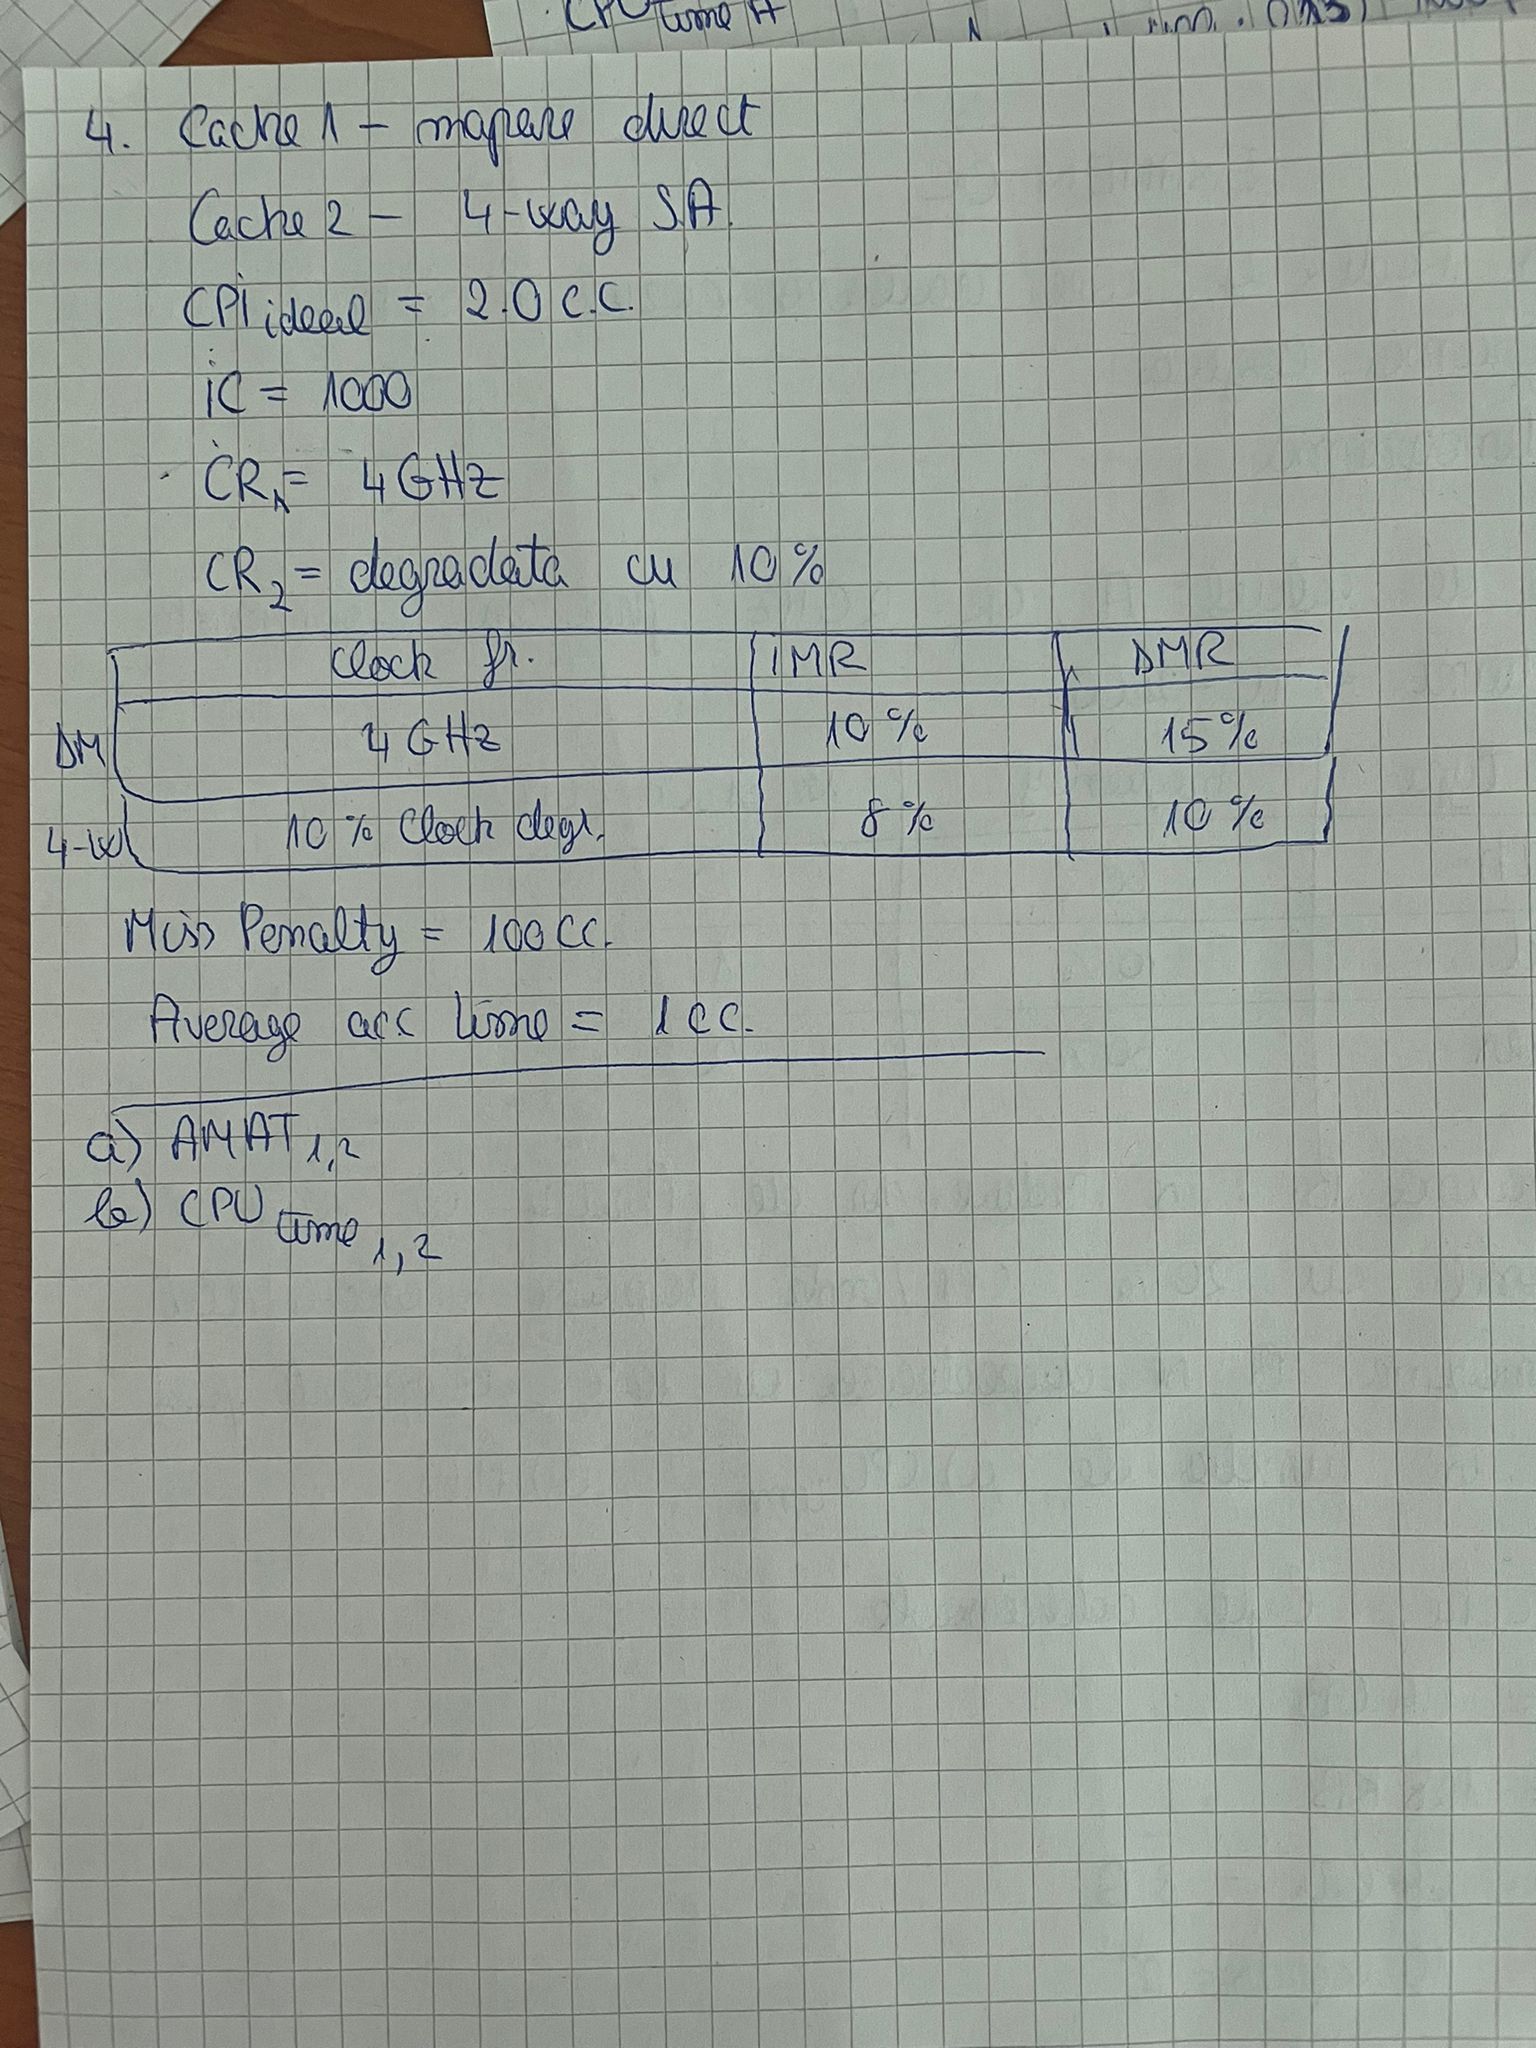 CPU time A
4. Cache 1 - mapare direct
Cache 2 - 4-way S.A.
CPI ideal = 2.0 C.C.
IC = 1000
CR1 = 4 GHz
CR2 = degradata cu 10%
Clock fr. IMR DMR
DM 4 GHz 10% 15%
4-W 10% Clock degr. 8% 10%
Miss Penalty = 100 CC.
Average acc time = 1 CC.
a) AMAT 1,2
b) CPU time 1,2